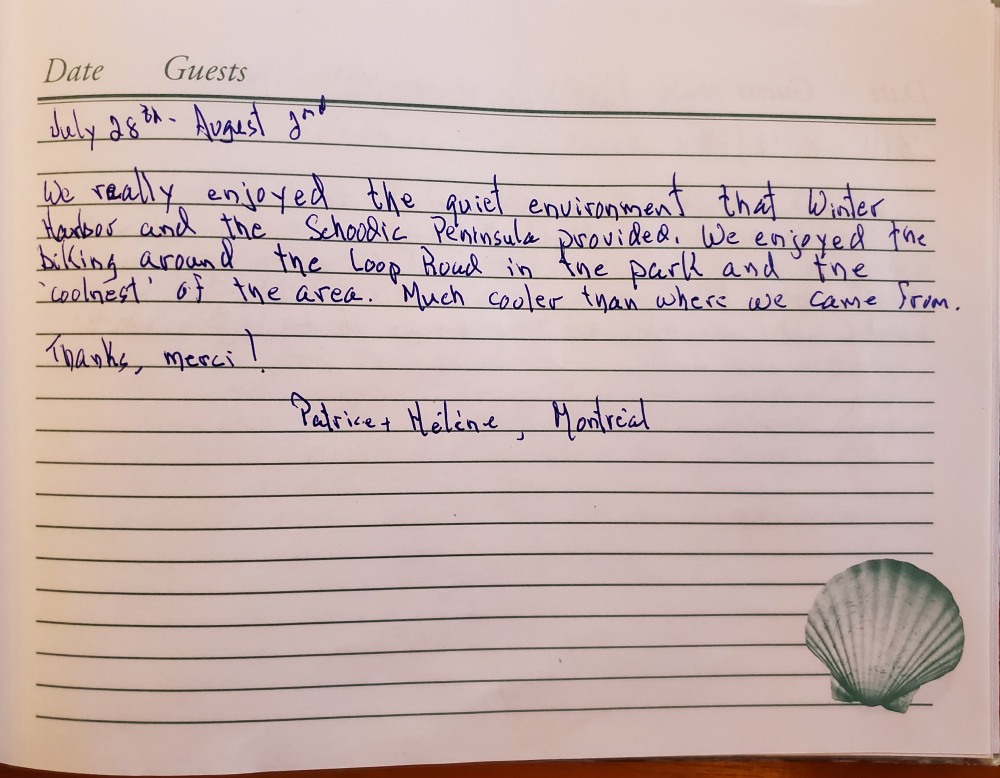 Date Guests
July 28th - August 2nd
We really enjoyed the quiet environment that Winter
Harbor and the Schoodic Peninsula provided. We enjoyed the
biking around the Loop Road in the park and the
'coolnest' of the area. Much cooler than where we came from.
Thanks, merci!
Patrice + Hélène, Montréal